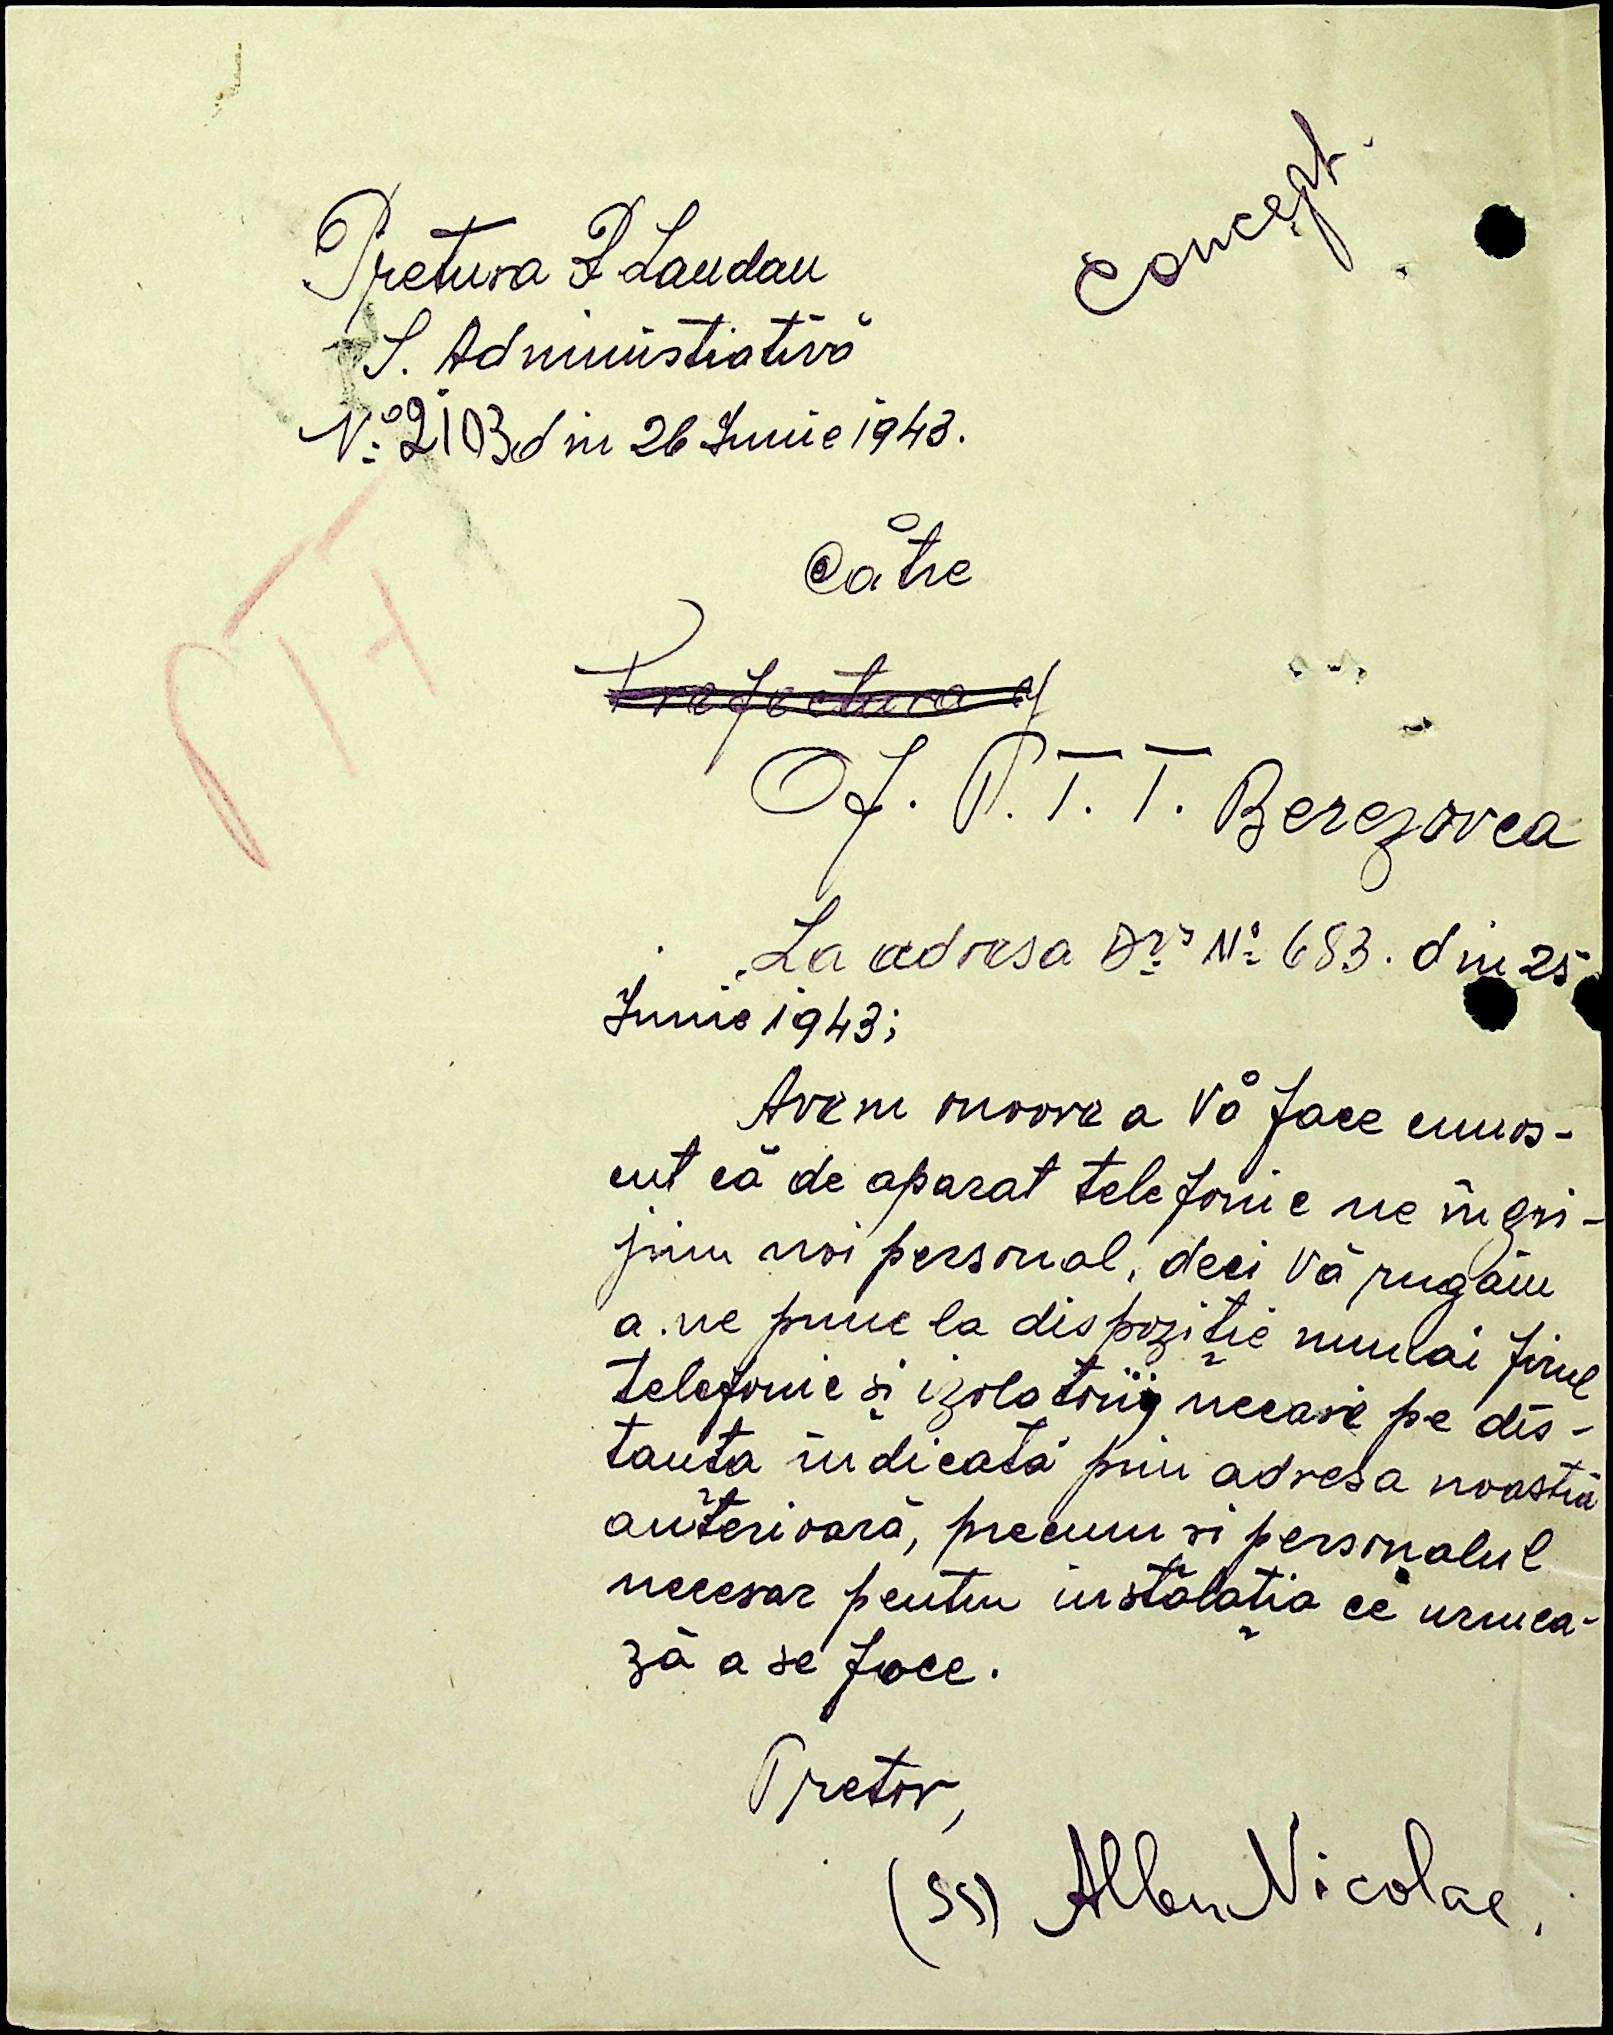 concept.
Pretura R Landau
S. Administrativă
No 2103 din 26 Iunie 1943.
PTT
Către
Prefectura
Of. P.T.T. Berezovca
La adresa Dvs No 683. din 25
Iunie 1943;
Avem onoore a Vă face cunos-
cut că de aparat telefonic ne îngri-
jim noi personal, deci Vă rugăm
a ne pune la dispoziție numai firul
telefonic și izolatorii necasri pe dis-
tanta indicată prin adresa noastră
anterioară, precum si personalul
necesar pentru instalația ce urmea-
ză a se face.
Pretor,
(ss) Albu Nicolae.